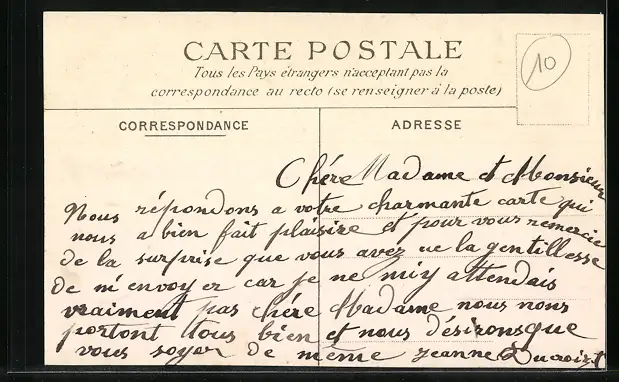 CARTE POSTALE
Tous les Pays étrangers n'acceptant pas la
correspondance au recto (se renseigner à la poste)
10
CORRESPONDANCE
ADRESSE
Chére Madame et Monsieur
Nous répondons a votre charmante carte qui
nous a bien fait plaisire et pour vous remercie
de la surprise que vous avez ue la gentillesse
de m'envoyer car je ne m'iy attendais
vraiment pas chére Madame nous nous
portont tous bien et nous désironsque
vous soyer de même Jeanne